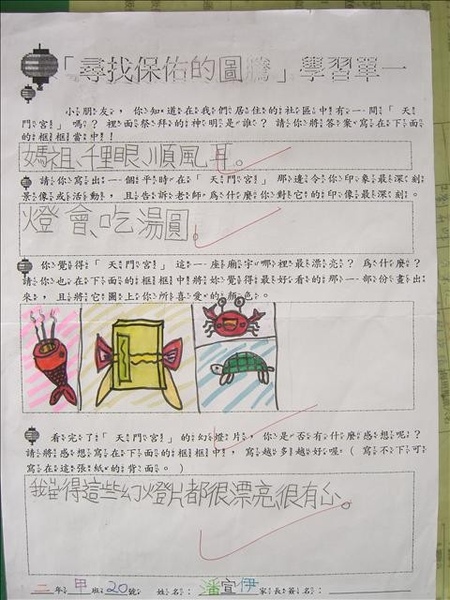 「尋找保佑的圖騰」學習單一
小朋友,你知道在我們居住的社區中有一間「天
門宮」嗎?裡面祭拜的神明是誰?請你將答案寫在下面
的框框當中!
媽祖、千里眼、順風耳。
請你寫出一個平時在「天門宮」那邊令你印象最深刻
景像或活動,且告訴老師為什麼你對它的印像最深刻。
燈會、吃湯圓。
你覺得「天門宮」這一座廟宇哪裡最漂亮?為什麼?
請你也在下面的框框中將妳覺得最好看的那一部份畫出
來,且將它圖上你所喜愛的顏色。
看完了「天門宮」的幻燈片,你是否有什麼感想呢?
請將感想寫在下面的框框中,寫越多越好喔(寫不下可
寫在這張紙的背面。)
我覺得這些幻燈片都很漂亮、很有心。
二年甲班20號 姓名:潘宣伊 家長簽名: